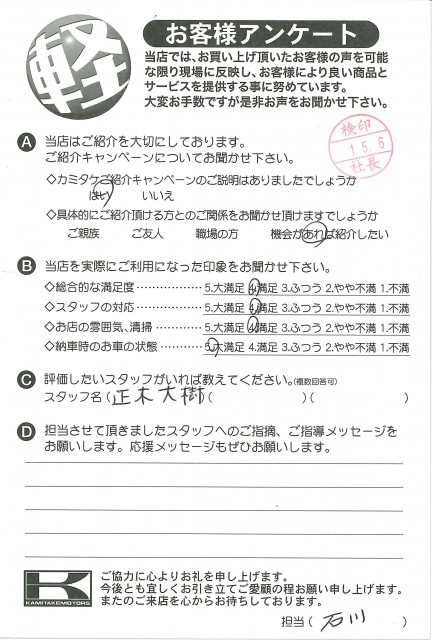 軽
お客様アンケート
当店では、お買い上げ頂いたお客様の声を可能
な限り現場に反映し、お客様により良い商品と
サービスを提供する事に努めています。
大変お手数ですが是非お声をお聞かせ下さい。
検印
1.5.6
社長
A 当店はご紹介を大切にしております。
ご紹介キャンペーンについてお聞かせ下さい。
◇カミタケご紹介キャンペーンのご説明はありましたでしょうか
はい いいえ
◇具体的にご紹介頂ける方とのご関係をお聞かせ頂けますでしょうか
ご親族 ご友人 職場の方 機会があれば紹介したい
B 当店を実際にご利用になった印象をお聞かせ下さい。
◇総合的な満足度 5.大満足 4.満足 3.ふつう 2.やや不満 1.不満
◇スタッフの対応 5.大満足 4.満足 3.ふつう 2.やや不満 1.不満
◇お店の雰囲気、清掃 5.大満足 4.満足 3.ふつう 2.やや不満 1.不満
◇納車時のお車の状態 5.大満足 4.満足 3.ふつう 2.やや不満 1.不満
C 評価したいスタッフがいれば教えてください。(複数回答可)
スタッフ名(正木大樹)( )( )
D 担当させて頂きましたスタッフへのご指摘、ご指導メッセージを
お願いします。応援メッセージもぜひお願いします。
K
KAMITAKEMOTORS
ご協力に心よりお礼を申し上げます。
今後とも宜しくお引き立てご愛顧の程お願い申し上げます。
またのご来店を心からお待ちしております。
担当( 石川 )